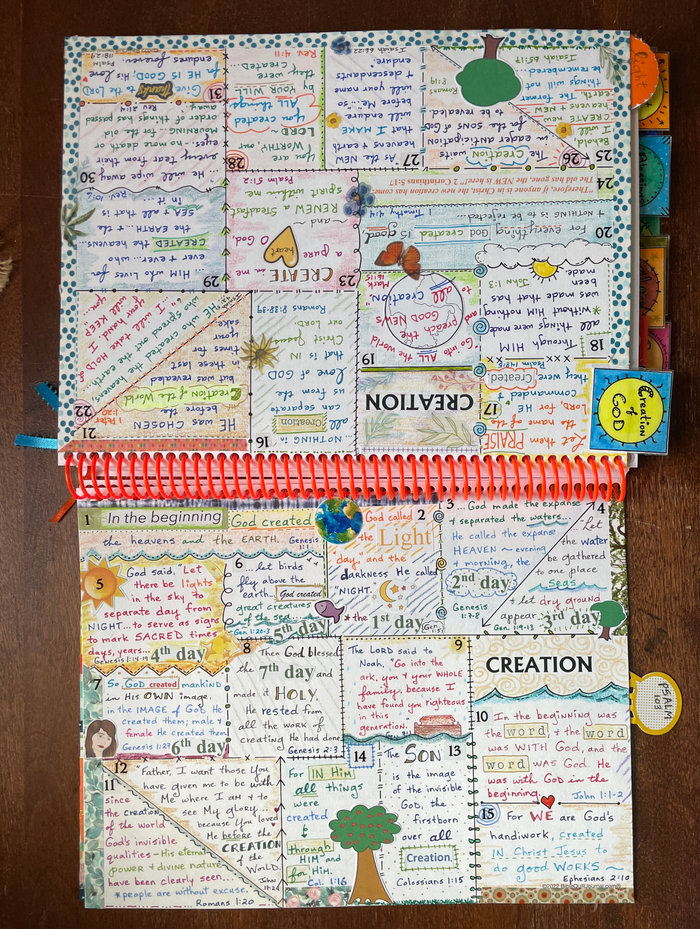 1 In the beginning God created
the heavens and the EARTH. Genesis 1:1
2 God called
the Light
"day," and the
darkness He called
"NIGHT."
the 1st day
Gen. 1:5
3 ...God made the expanse
+ separated the waters.
He called the expanse
HEAVEN ~ evening
+ morning, the
2nd day
Genesis
1:7-8
4
Let
the water
be gathered
to one place
seas
+ let dry ground
appear.
Genesis
Gen. 1:9-13
3rd day
5
God said, "Let
there be lights
in the sky to
separate day from
NIGHT...to serve as signs
to mark SACRED times
days, years...
Genesis 1:14-19
4th day
6
...let birds
fly above the
earth. God created
great creatures
of the sea...
Gen. 1:20-23
5th day
7
So GOD created mankind
in His OWN image,
in the IMAGE of GOD He
created them; male +
female He created them.
Genesis 1:27
6th day
8
Then God blessed
the 7th day and
made it HOLY.
He rested from
all the work of
creating He had done.
Genesis 2:3
9
The LORD said to
Noah, "Go into the
ark, you + your WHOLE
family, because I
have found you righteous
in this
generation."
CREATION
10 In the beginning was
the word + the word
was WITH God, and the
word was God. He
was with GOD in the
beginning.
John 1:1-2
11
since
the creation
of the world
God's invisible
qualities ~ His eternal
power + divine nature ~
have been clearly seen...
*people are without excuse.
Romans 1:20
12
Father, I want those You
have given me to be with
Me where I am + to
see My glory...
because You loved
Me before the
CREATION
of the
World.
John
17:24
13
The SON
is the image
of the invisible
GOD, the
firstborn
over all
Creation.
Colossians 1:15
14
For IN Him
all things
were
created
through
HIM and
for Him.
Col. 1:16
15 For WE are God's
handiwork, created
IN Christ Jesus to
do good WORKS ~
Ephesians 2:10
16
...NOTHING in all
Creation
can separate
us from the
love of GOD
that is IN
Christ Jesus
our LORD.
Romans 8:38-39
17
Let them PRAISE
the name of the
LORD, for He
commanded +
they were
Created
Psalm 148:5
CREATION
18
Through HIM
all things were
made;
without HIM nothing
was made that has
been
made.
John 1:3
19
Go into ALL the world
and
preach the
GOOD NEWS
to all
Creation."
Mark
16:15
20
For everything God created is good
+ NOTHING is to be rejected...
1 Timothy 4:4
21
HE was CHOSEN
before the
Creation of the World
but was revealed
in these last
times for
your
sake.
1 Peter
1:20
22
...HE
who created the heavens
who spreads out the earth...
"I will take HOLD
of your hand. I
will KEEP
you."
23
CREATE in me
a pure heart
O God,
~ and ~
RENEW a steadfast
spirit within me.
Psalm 51:2
24
Therefore, if anyone is in Christ, the new creation has
come, The old has gone, the NEW is here. 2 Corinthians 5:17
25
Behold
I will
CREATE
new
heavens +
a NEW
earth.
The former
things will not
be remembered...
Isaiah 65:17
26
The Creation waits
in eager anticipation
for the sons of God
to be revealed.
Romans
8:19
27
"As the NEW
heavens + the NEW
earth
that I MAKE
will endure
before Me...so
will your name
+ descendants
endure.
Isaiah 66:22
28
You are
WORTHY, our
LORD ~
You created
ALL things
by YOUR WILL
they were
CREATED.
Rev. 4:11
29
... HIM who lives for
ever + ever...who
CREATED the heavens...
the EARTH + the
SEA + all that is
IN it...
Rev. 10:6
30
He will wipe
every tear from their
eyes.
no more death or
MOURNING...for the old
order of things has passed
away.
Rev. 21:4
31
Give Thanks to the LORD
for HE IS GOOD; His love
endures forever.
Psalm
118:29
light
Creation
of
GOD
PSALM
103